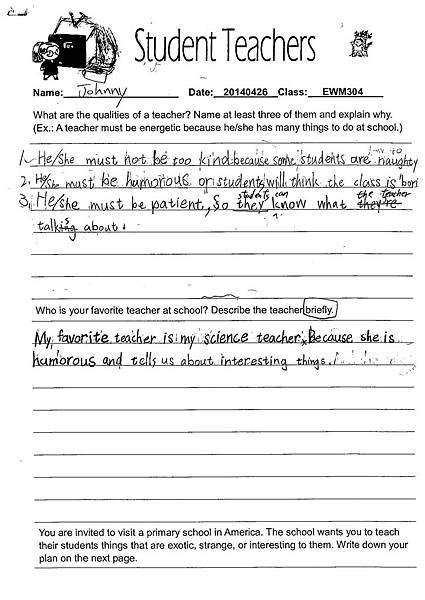 Student Teachers
Name: Johnny Date: 20140426 Class: EWM304
What are the qualities of a teacher? Name at least three of them and explain why.
(Ex.: A teacher must be energetic because he/she has many things to do at school.)
1. He/She must not be too kind because some students are naughty
2. He/She must be humorous or students will think the class is bori
students can the teacher
3. He/She must be patient, So they know what they're
is
talking about.
Who is your favorite teacher at school? Describe the teacher briefly.
My favorite teacher is my science teacher, Because she is
humorous and tells us about interesting things.
You are invited to visit a primary school in America. The school wants you to teach
their students things that are exotic, strange, or interesting to them. Write down your
plan on the next page.